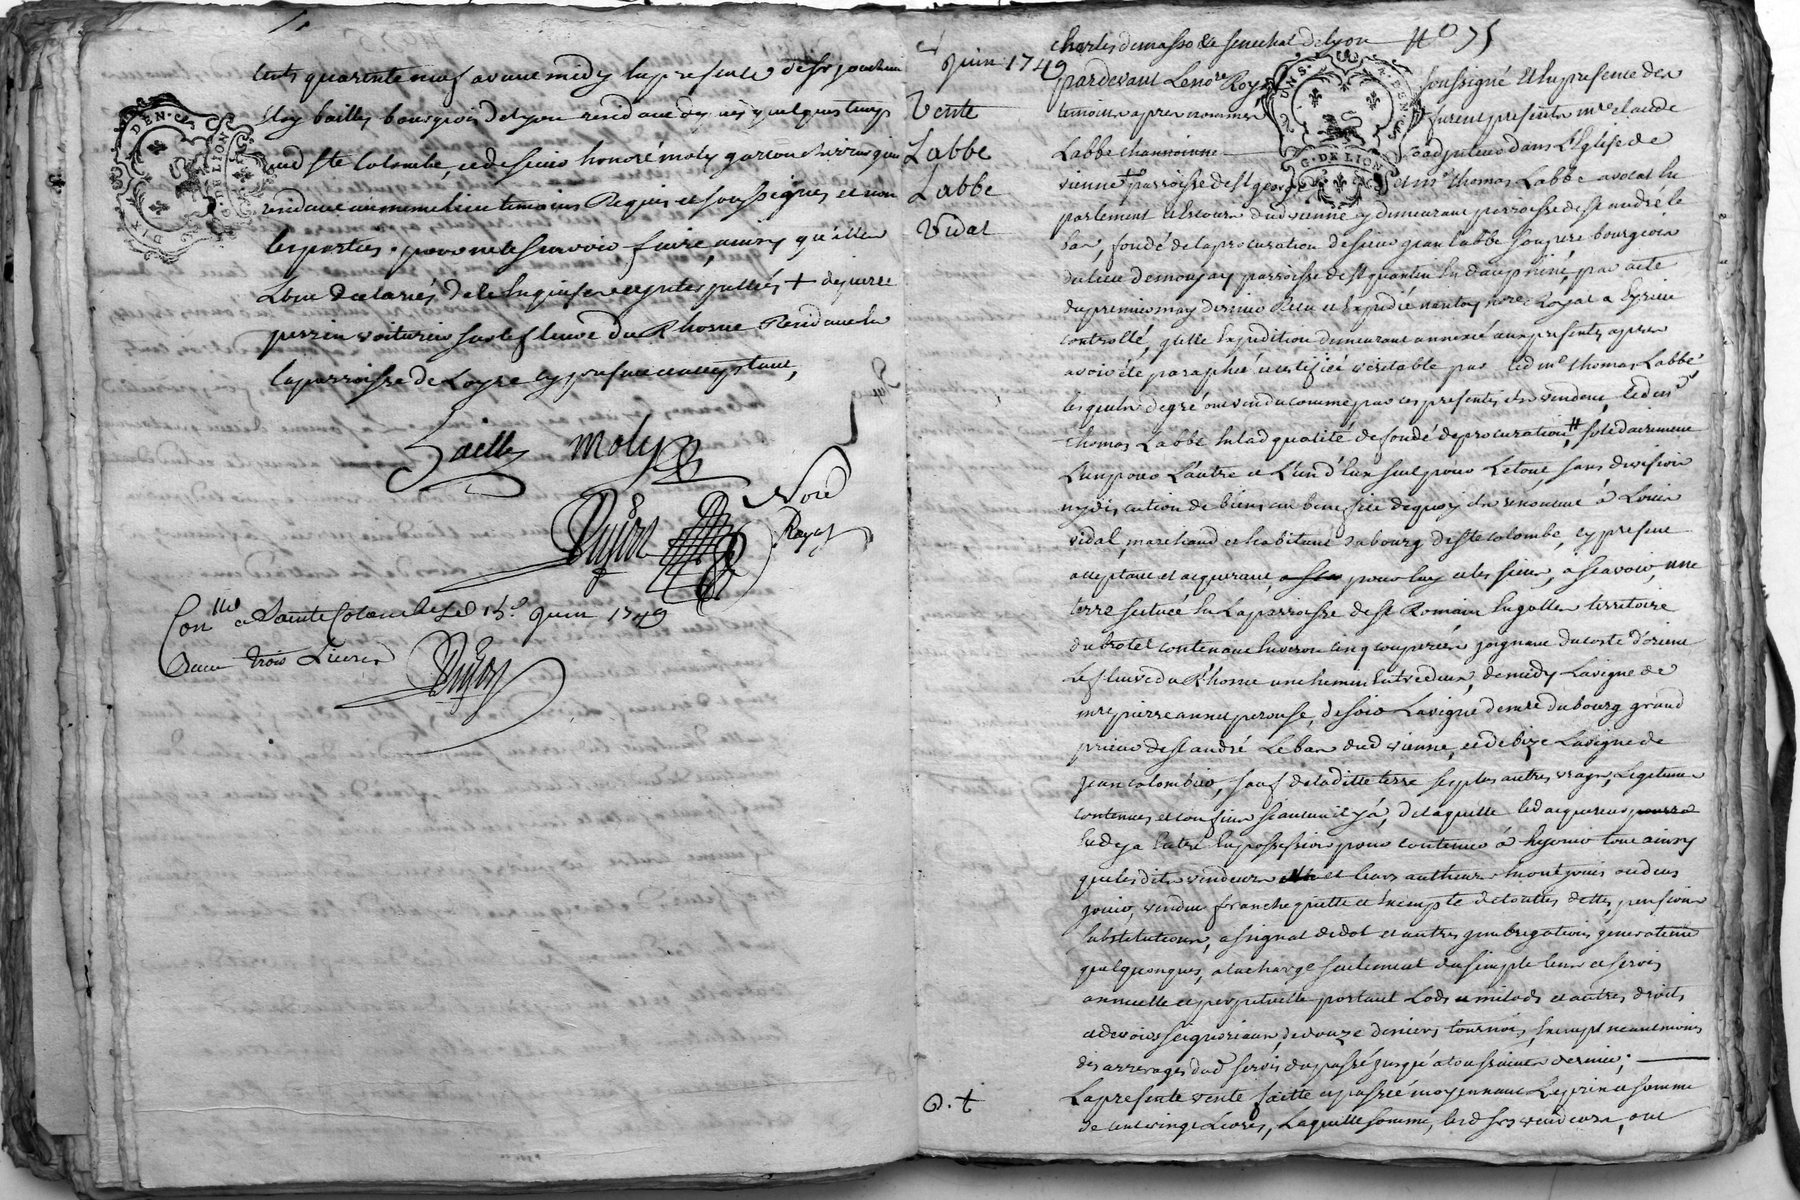 cents quarente neuf avant midy en presence de sr joachim
Eloy bailly bourgeois de Lyon residant depuis quelques temps
aud ste Colombe, et de sieur honoré moly garcon chirurgien
residant au meme lieu temoins Requis et soussignés et non
les parties pour ne le scavoir faire, ainsy qu'elles
L'ont declarés de le enquises et interpellés + de pierre
perrin voiturier sur le fleuve du Rhosne Residant en
la parroisse de Loyre cy present et acceptant,
Bailly moly
Guyot Nore
Royal
Con.lle a Sainte Colombe le 15e juin 1749
Recu trois Livres
Guyot
juin 1749
Vente
Labbe
Labbe
Vidal
charles demasso &c senechal de Lyon No 75
pardevant Le nore Royal soussigné et en presence des
temoins apres nommés furent presents mre claude
Labbe channoinne coadjuteur dans L'Eglise de
vienne + parroisse de st george et mre thomas Labbe avocat en
parlement et es cours dud vienne y demeurant parroisse de st andré le
bas, fondé de la procuration de sieur jean Labbe son pere bourgeois
du lieu de moujay parroisse de st quantin en dauphiné, par acte
du premier may dernier Recu et Expedié nantoy nore Royal a
controllé, quelle Expedition demeurant annexé aux presentes apres
avoir été paraphée et certifiée veritable par led mre thomas Labbe
lesquels de gré ont vendu comme par ces presentes ils vendent, led mre
thomas Labbe en lad qualité de fondé de procuration # solidairement
L'un pour L'autre et L'un d'eux seul pour Le tout, sans division
ny discution de biens au benefice de quoy ils renoncent à Louis
vidal, marchand et habitant du bourg de ste colombe, cy present
acceptant et acquerant, pour luy et les siens, a scavoir, une
terre scituée en La parroisse de st Romain en galles territoire
du brotel contenant environ cinq couperées joignant du costé d'orient
Le fleuve du Rhosne un chemin entre deux, de midy La vigne de
mre pierre annet perouse, de soir La vigne de mre dubourg grand
prieur de st andré Le bas dud vienne, et de bize La vigne de
jean colombier, sauf de la ditte terre ses plus autres vrays, Legitimes
contenues et confins si aucun il y à, de laquelle led acquereur
est deja Entré en possession pour continuer à En jouir tout ainsy
que les dits vendeurs et leurs autheurs en ont jouis ou deus
jouir, vendue franche quitte et Exempte de toutes dettes, pensions
substitutions, assignat de dot et autres generallement
quelquonques, a la charge seulement du simple cens et servis
annuelle et perpetuelle portant Lods et milods et autres droits
et devoirs seigneuriaux, de douze deniers tournois, Exempt neantmoins
des arrerages dud servis du passé jusqu'à toussaint dernier;
La presente vente faitte et passée moyennant Le prix et somme
de cent vingt Livres, Laquelle somme, les d srs vendeurs, ont